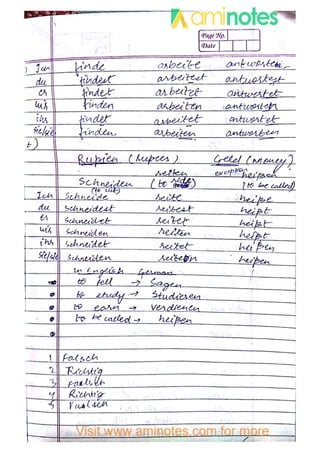 aminotes
Page No.
Date
Ich finde arbeite antworte
du findest arbeitest antwortest
er findet arbeitet antwortet
wir finden arbeiten antworten
ihr findet arbeitet antwortet
sie/sie finden. arbeiten antworten
Rupien (Rupees) Geld (Money)
reiten exception heißen
Schneiden (to ride) (to be called)
(to cut)
Ich Schneide reite heiße
du Schneidest reitest heißt
er Schneidet reitet heißt
wir Schneiden reiten heißt
ihr Schneidet reitet heißen
Sie/sie Schneiden reiten heißen
In English German
to tell → Sagen
to study → Studieren
to earn → verdienen
to be called → heißen
1 Falsch
2 Richtig
3 Falsch
4 Richtig
5 Falsch
Visit www.aminotes.com for more